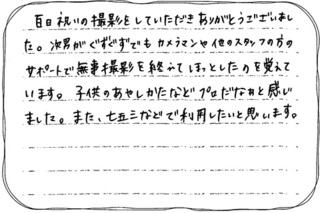 百日祝いの撮影をしていただきありがとうございまし
た。次男がぐずぐずでもカメラマンや他のスタッフの方の
サポートで無事撮影を終みてほっとしたのを覚えて
います。子供のあやしかたなどプロだなぁと感じ
ました。また、七五三などで利用したいと思います。